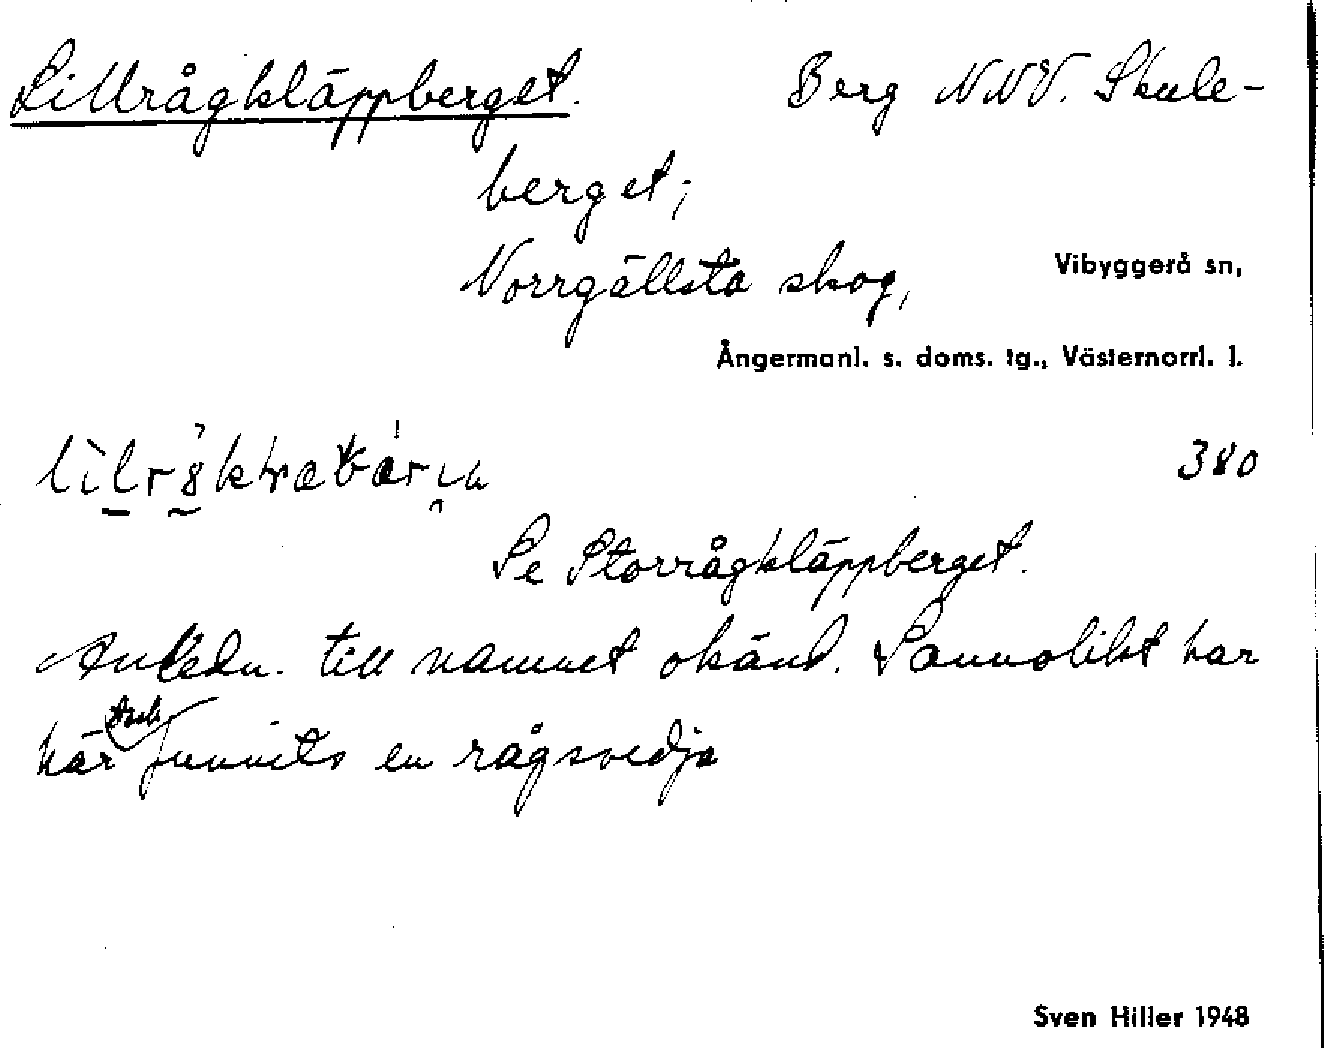 Lillrågkläppberget. Berg NNV. Skule-
berget;
Norrgällsta skog, Vibyggerå sn,
Ångermanl. s. doms. tg., Västernorrl. l.
380
Se Storrågkläppberget.
Anledn. till namnet okänd. Sannolikt har
här funnits en rågsvedja
Sven Hiller 1948